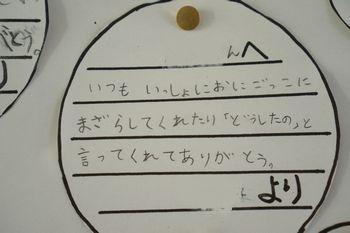 んへ
いつも いっしょにおにごっこに
まざらしてくれたり「どうしたの」と
言ってくれてありがとう。
より